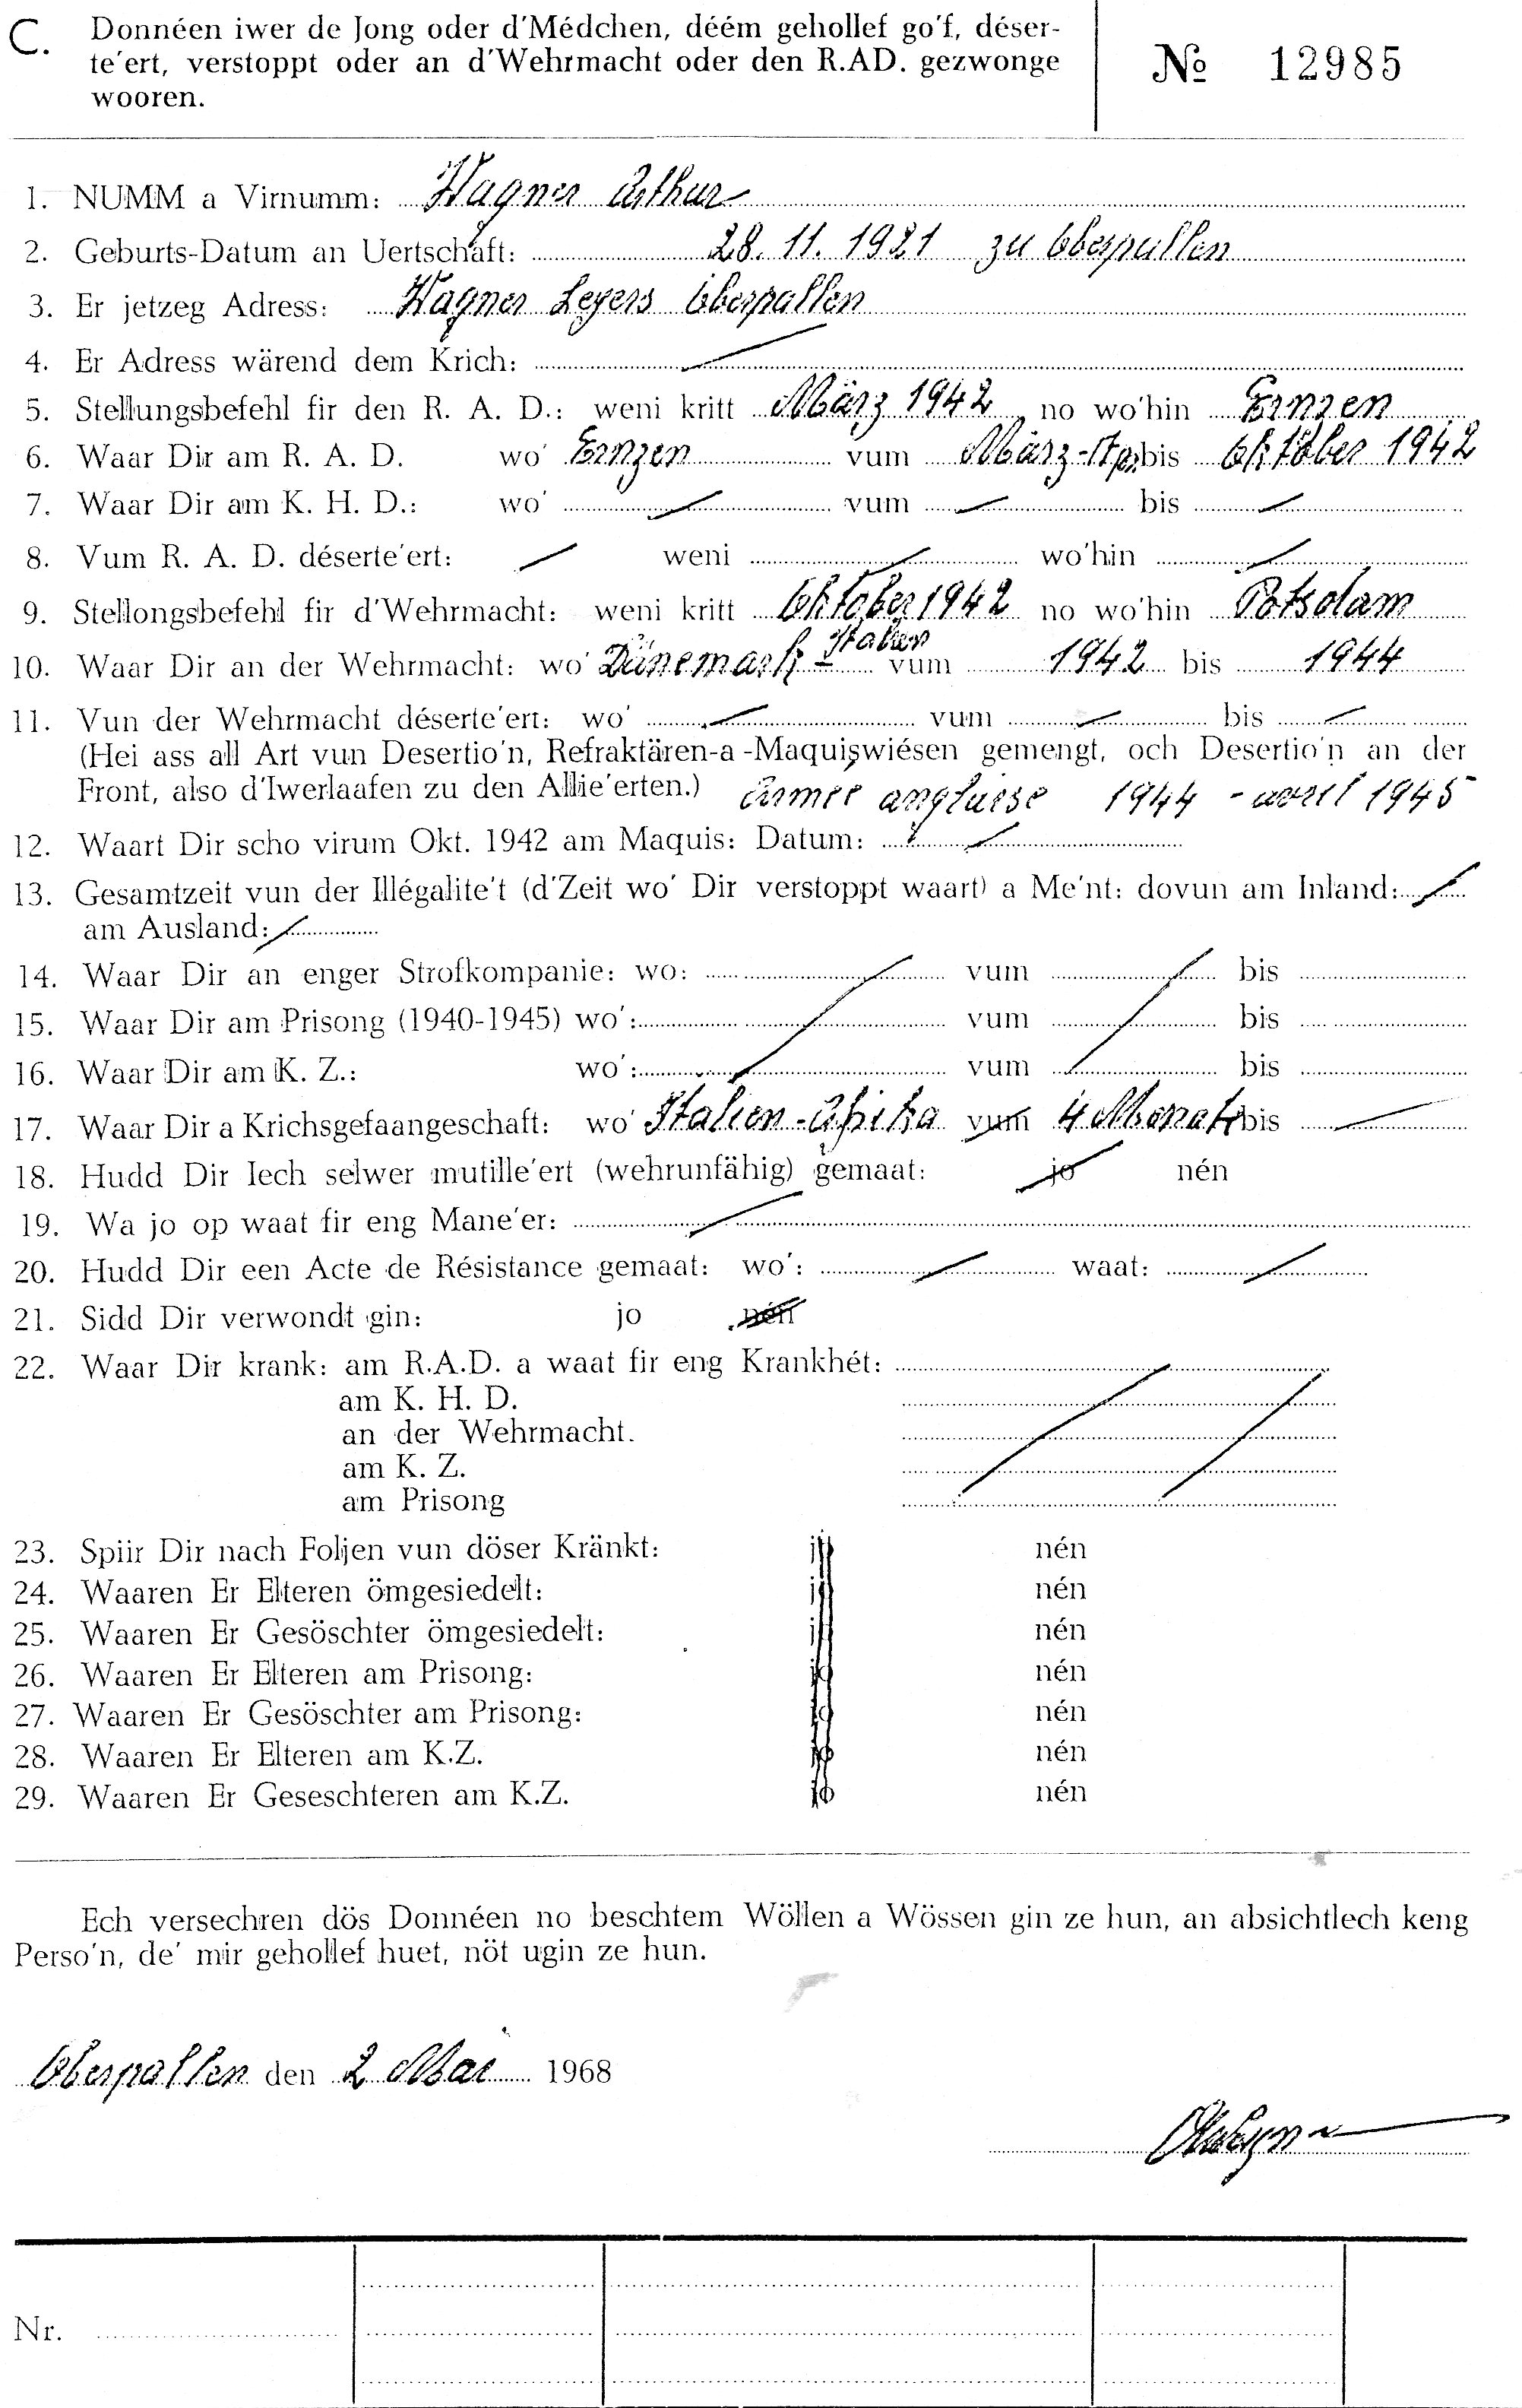 C. Donnéen iwer de Jong oder d'Médchen, déém gehollef go'f, déser-
te'ert, verstoppt oder an d'Wehrmacht oder den R.AD. gezwonge
wooren.
№ 12985
1. NUMM a Virnumm: Wagner Arthur
2. Geburts-Datum an Uertschaft: 28. 11. 1921 zu Oberpallen
3. Er jetzeg Adress: Wagner Legers Oberpallen
4. Er Adress wärend dem Krich:
5. Stellungsbefehl fir den R. A. D.: weni kritt März 1942 no wo'hin Ernzen
6. Waar Dir am R. A. D. wo' Ernzen vum März-Apr. bis Oktober 1942
7. Waar Dir am K. H. D.: wo' vum bis
8. Vum R. A. D. déserte'ert: weni wo'hin
9. Stellongsbefehl fir d'Wehrmacht: weni kritt Oktober 1942 no wo'hin Potsdam
10. Waar Dir an der Wehrmacht: wo' Dänemark - Italien vum 1942 bis 1944
11. Vun der Wehrmacht déserte'ert: wo' vum bis
(Hei ass all Art vun Desertio'n, Refraktären-a-Maquiswiésen gemengt, och Desertio'n an der
Front, also d'Iwerlaafen zu den Allie'erten.) Armée anglaise 1944 - avril 1945
12. Waart Dir scho virum Okt. 1942 am Maquis: Datum:
13. Gesamtzeit vun der Illégalite't (d'Zeit wo' Dir verstoppt waart) a Me'nt: dovun am Inland:
am Ausland:
14. Waar Dir an enger Strofkompanie: wo: vum bis
15. Waar Dir am Prisong (1940-1945) wo': vum bis
16. Waar Dir am K. Z.: wo': vum bis
17. Waar Dir a Krichsgefaangeschaft: wo' Italien-Afrika vum 4 Monate bis
18. Hudd Dir Iech selwer mutille'ert (wehrunfähig) gemaat: jo nén
19. Wa jo op waat fir eng Mane'er:
20. Hudd Dir een Acte de Résistance gemaat: wo': waat:
21. Sidd Dir verwondt gin: jo nén
22. Waar Dir krank: am R.A.D. a waat fir eng Krankhét:
am K. H. D.
an der Wehrmacht.
am K. Z.
am Prisong
23. Spiir Dir nach Foljen vun döser Kränkt: jo nén
24. Waaren Er Elteren ömgesiedelt: jo nén
25. Waaren Er Gesöschter ömgesiedelt: jo nén
26. Waaren Er Elteren am Prisong: jo nén
27. Waaren Er Gesöschter am Prisong: jo nén
28. Waaren Er Elteren am K.Z. jo nén
29. Waaren Er Geseschteren am K.Z. jo nén
Ech versechren dös Donnéen no beschtem Wöllen a Wössen gin ze hun, an absichtlech keng
Perso'n, de' mir gehollef huet, nöt ugin ze hun.
Oberpallen den 2 Mai 1968
Nr.